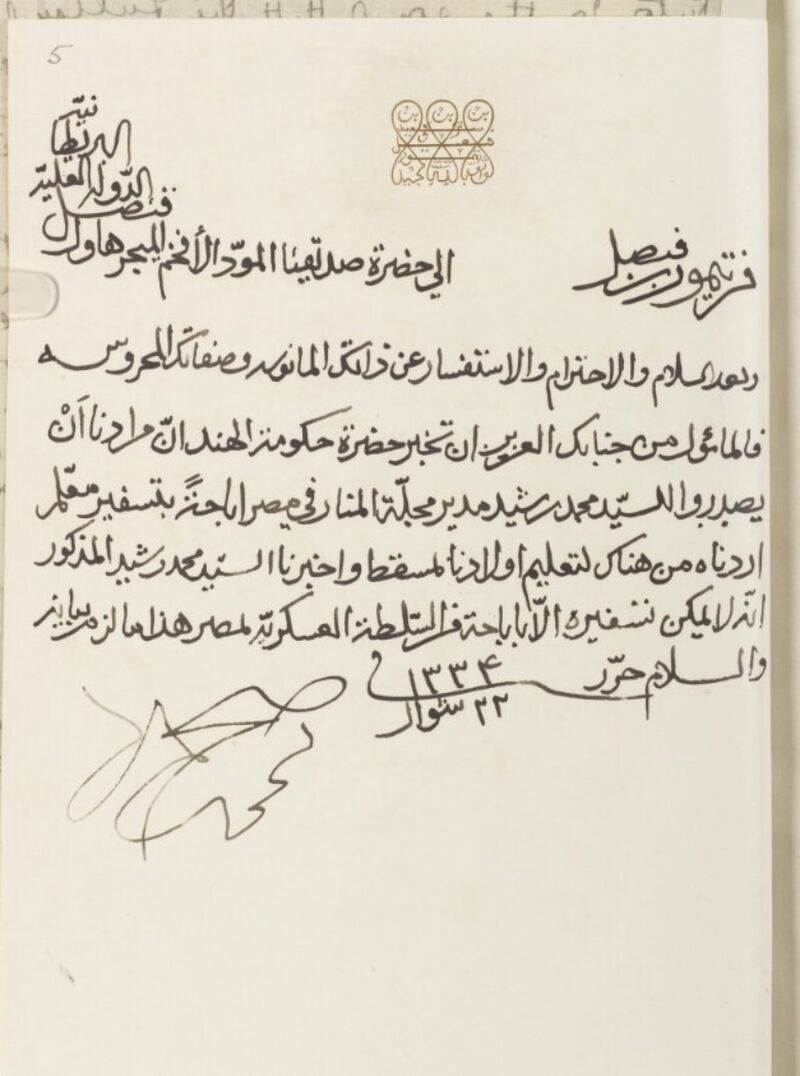 5
من تيمور بن فيصل
الي حضرة صديقنا المودّ الأفخم الميجر هاورل
قنصل
الدولة العليّة
البريطا
نيّة
وبعد السلام والاحترام والاستفسار عن ذاتك المانوسه وصفاتك المحروسه
فالمامؤل من جنابك العزيز ان تخبر حضرة حكومة الهند انّ مرادنا اَنْ
يصدروا للسيّد محمد رشيد مدير مجلّة المنار في مصر اباحةً بتسفير معلّم
اردناه من هناك لتعليم اولادنا لمسقط واخبرنا السيّد محمد رشيد المذكور
انّه لا يمكن تسفيره الاّ باباحة من السّلطة العسكريّة لمصر هذا ما لزم بيانه
والسلام حرّر
٢٢ شوال ١٣٣٤